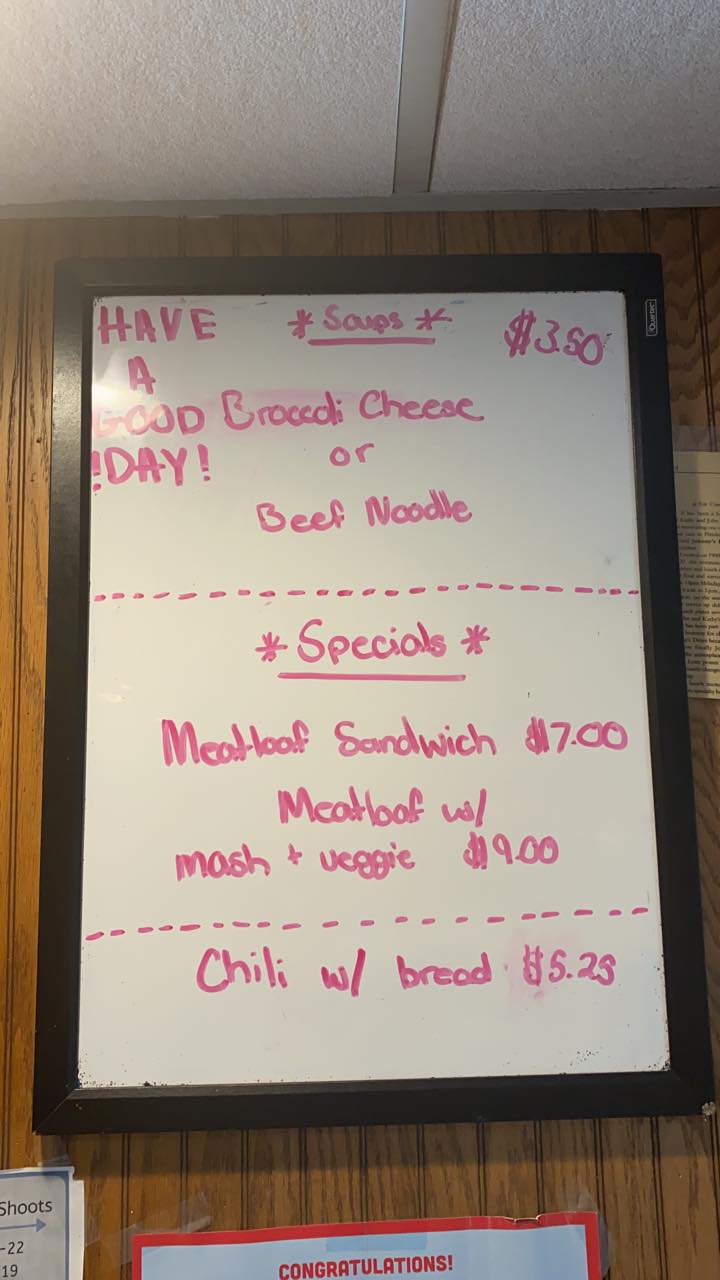 HAVE
A
GOOD
!DAY!
*Soups* $3.50
Broccoli Cheese
or
Beef Noodle
*Specials*
Meatloaf Sandwich $7.00
Meatloaf w/
mash + veggie $9.00
Chili w/ bread $5.25
Quartet
Shoots
-22
19
CONGRATULATIONS!